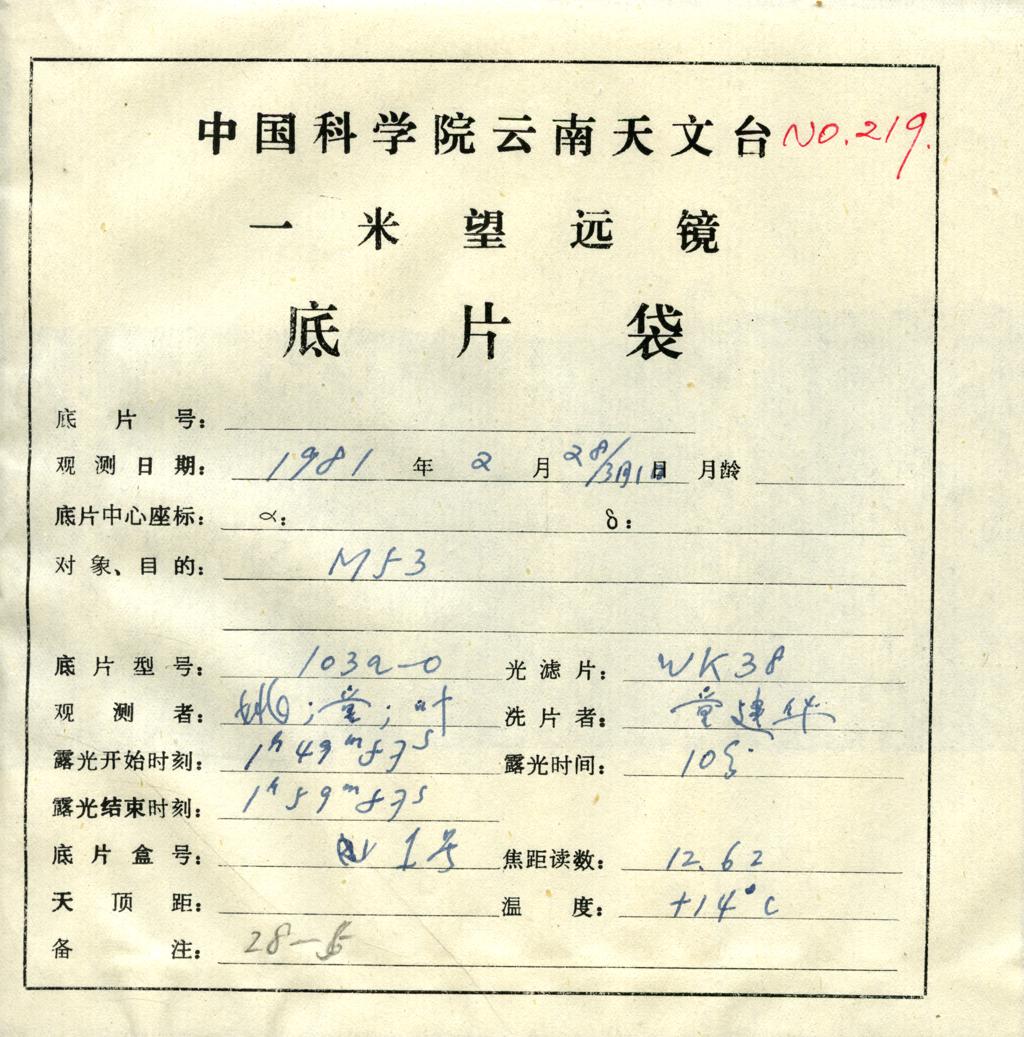 中国科学院云南天文台 NO.219.
一米望远镜
底片袋
底片号:
观测日期: 1981 年 2 月 28/3月1日 月龄
底片中心座标: α: δ:
对象、目的: M53
底片型号: 103a-O 光滤片: WK38
观测者: 姚; 堂; 叶 洗片者: 堂建华
露光开始时刻: 1h 49m 57s 露光时间: 10分
露光结束时刻: 1h 59m 57s
底片盒号: 1号 焦距读数: 12.62
天顶距: 温度: +14°C
备注: 28-5